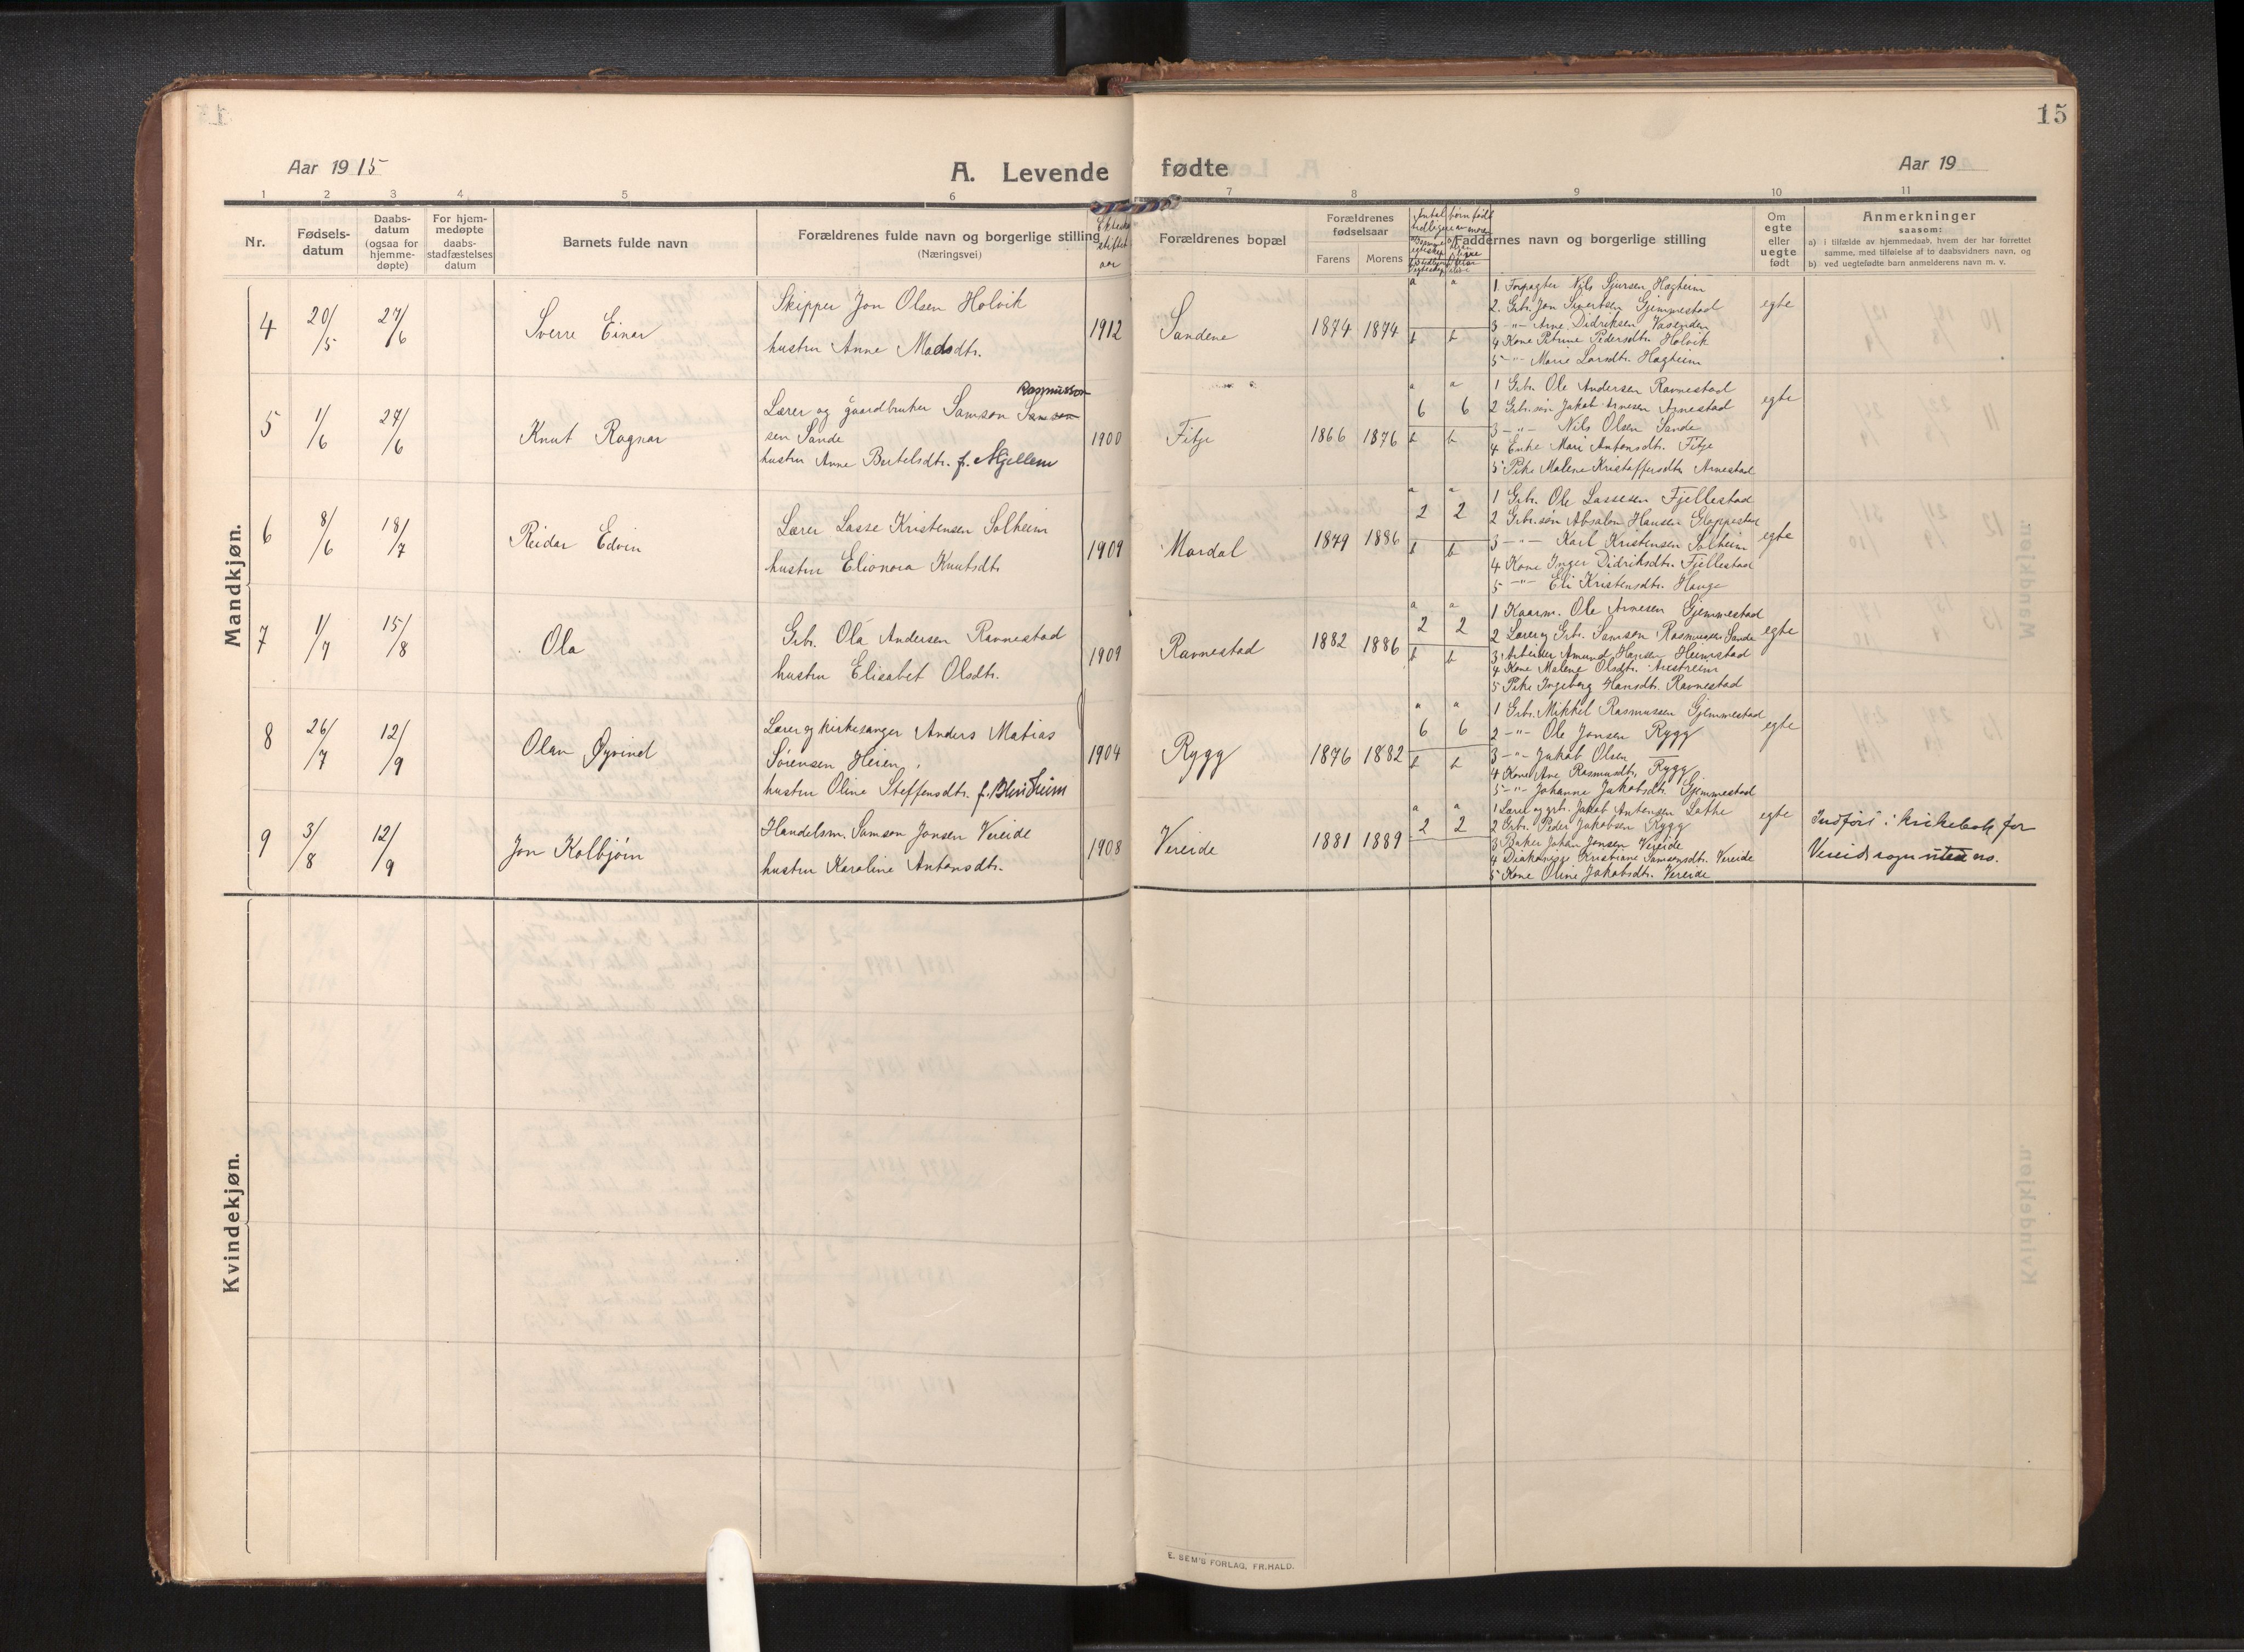 15
Aar 1915
A. Levende fødte
Aar 19
1 2 3 4 5 6 7 8 9 10 11
Nr.
Fødsels-
datum
Daabs-
datum
(ogsaa for
hjemme-
døpte)
For hjem-
medøpte
daabs-
stadfæstelses
datum
Barnets fulde navn
Forældrenes fulde navn og borgerlige stilling
(Næringsvei)
Forældrenes bopæl
Forældrenes
fødselsaar
Farens Morens
Faddernes navn og borgerlige stilling
Om
egte
eller
uegte
født
Anmerkninger
saasom:
a) i tilfælde av hjemmedaab, hvem der har forrettet
samme, med tilføielse af to daabsvidners navn, og
b) ved uegtefødte barn anmelderens navn m. v.
Mandkjøn.
4
20/5
27/6
Sverre Einar
Skipper Jon Olsen Holvik
hustru Anne Madsdtr.
1912
Sandene
1874 1874
a a
b b
1. Forpagter Nils Sjursen Hagheim
2. Grbr. Jon Sivertsen Gjemmestad
3 -"- Arne Didriksen Vasenden
4 Kone Petrine Pedersdtr. Holvik
5 -"- Marie Larsdtr. Hagheim
egte
5
1/6
27/6
Knut Ragnar
Rasmusson
Lærer og gaardbruker Samson Samson
sen Sande
hustru Anne Bertelsdtr. f. Mjellem
1900
Fitje
1866 1876
a a
6 6
b b
1 Grbr. Ole Andersen Ravnestad
2 Grbr.søn Jakob Arnesen Arnestad
3 -"- Nils Olsen Sande
4 Enke Mari Antonsdtr. Fitje
5 Pike Malene Kristoffersdtr Arnestad
egte
6
8/6
18/7
Reidar Edvin
Lærer Lasse Kristensen Solheim
hustru Elionora Knutsdtr
1909
Mardal
1879 1886
a a
2 2
b b
1 Grbr. Ole Lassesen Fjellestad
2 Grbr.søn Absalon Hansen Gloppestad
3 -"- Karl Kristensen Solheim
4 Kone Inger Didriksdtr. Fjellestad
5 -"- Eli Kristensdtr. Hauge
egte
7
1/7
15/8
Ola
Grbr. Ola Andersen Ravnestad
hustru Elisabet Olsdtr.
1909
Ravnestad
1882 1886
a a
2 2
b b
1 Kaarm. Ole Arnesen Gjemmestad
2 Lærer og Grbr. Samson Rasmussen Sande
3 Arbeider Amund Hansen Heimstad
4 Kone Malene Olsdtr. Austreim
5 Pike Ingeborg Hansdtr. Ravnestad
egte
8
26/7
12/9
Olav Øyvind
Lærer og kirkesanger Anders Matias
Sørensen Heien,
hustru Oline Steffensdtr. f. Blindheim
1904
Rygg
1876 1882
a a
6 6
b b
1 Grbr. Mikkel Rasmussen Gjemmestad
2 -"- Ole Jonsen Rygg
3 -"- Jakob Olsen
4 Kone Ane Rasmusdtr. Rygg
5 -"- Johanne Jakobsdtr. Gjemmestad
egte
9
3/8
12/9
Jon Kolbjørn
Handelsm. Samson Jonsen Vereide
hustru Karoline Antonsdtr.
1908
Vereide
1881 1889
a a
2 2
1 Lærer og grbr. Jakob Antonsen Lothe
2 Grbr. Peder Jakobsen Rygg
3 Baker Johan Jonsen Vereide
4 Diakonisse Kristiane Samsonsdtr. Vereide
5 Kone Oline Jakobsdtr. Vereide
egte
Indført i kirkebok for
Vereid sogn uten no.
Kvindekjøn.
E. SEM'S FORLAG, FR.HALD.